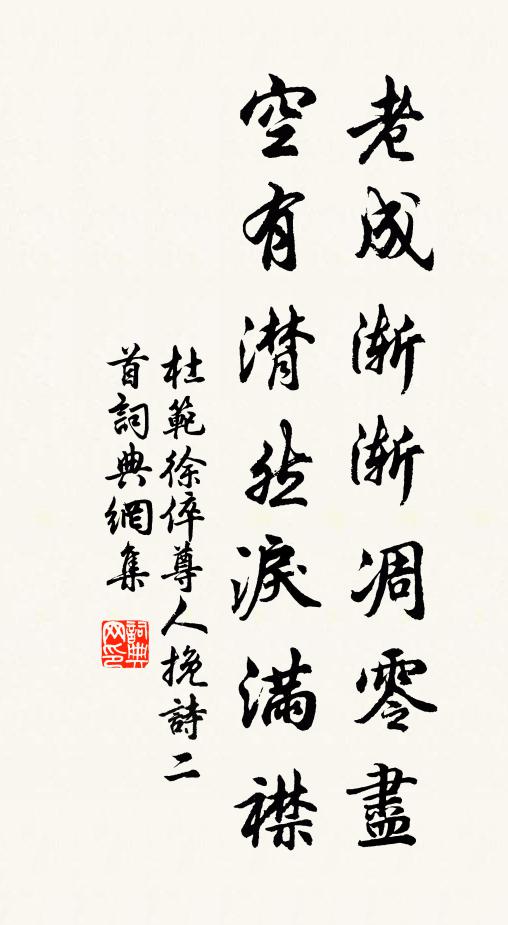 老成渐渐凋零盡
空有潸然淚滿襟
杜範徐倅尊人挽詩二
首詞典網集
詞典
网印